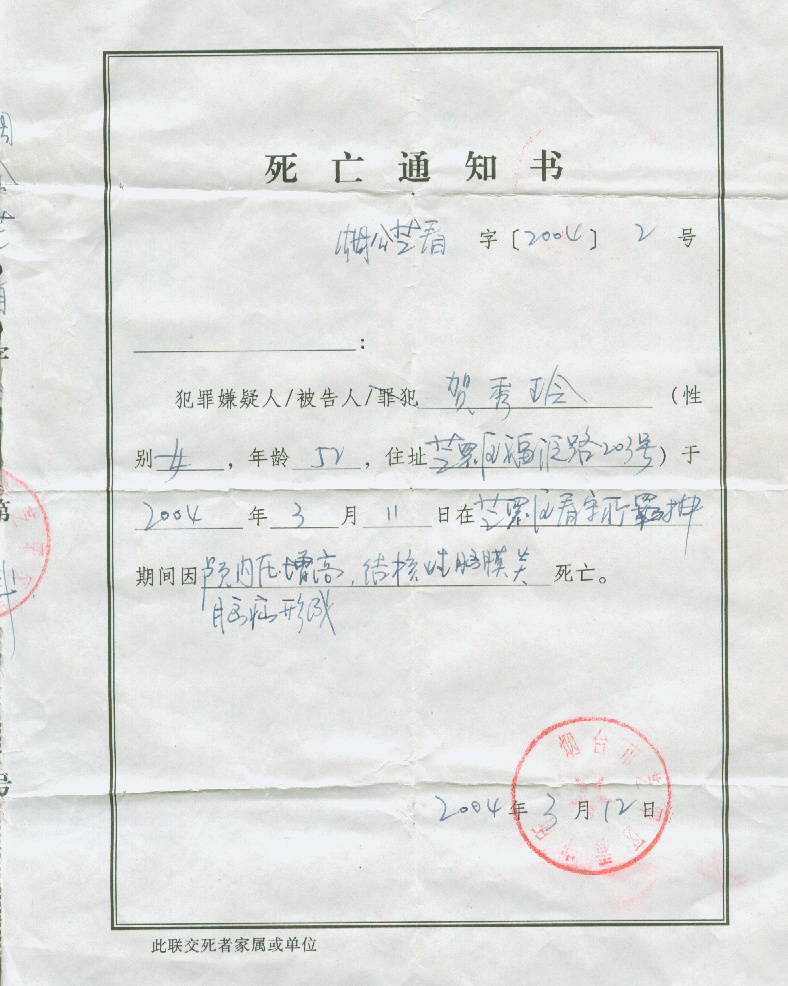 死亡通知书
烟公芝看 字〔2004〕 2 号
:
犯罪嫌疑人/被告人/罪犯 贺秀玲 (性
别 女 ，年龄 52 ，住址 芝罘区福 路203号 ) 于
2004 年 3 月 11 日在 芝罘区看守所羁押
期间因 颅内压增高，结核性脑膜炎 死亡。
脑疝形成
烟台市芝罘区看守所
2004 年 3 月 12 日
此联交死者家属或单位
字
第
号